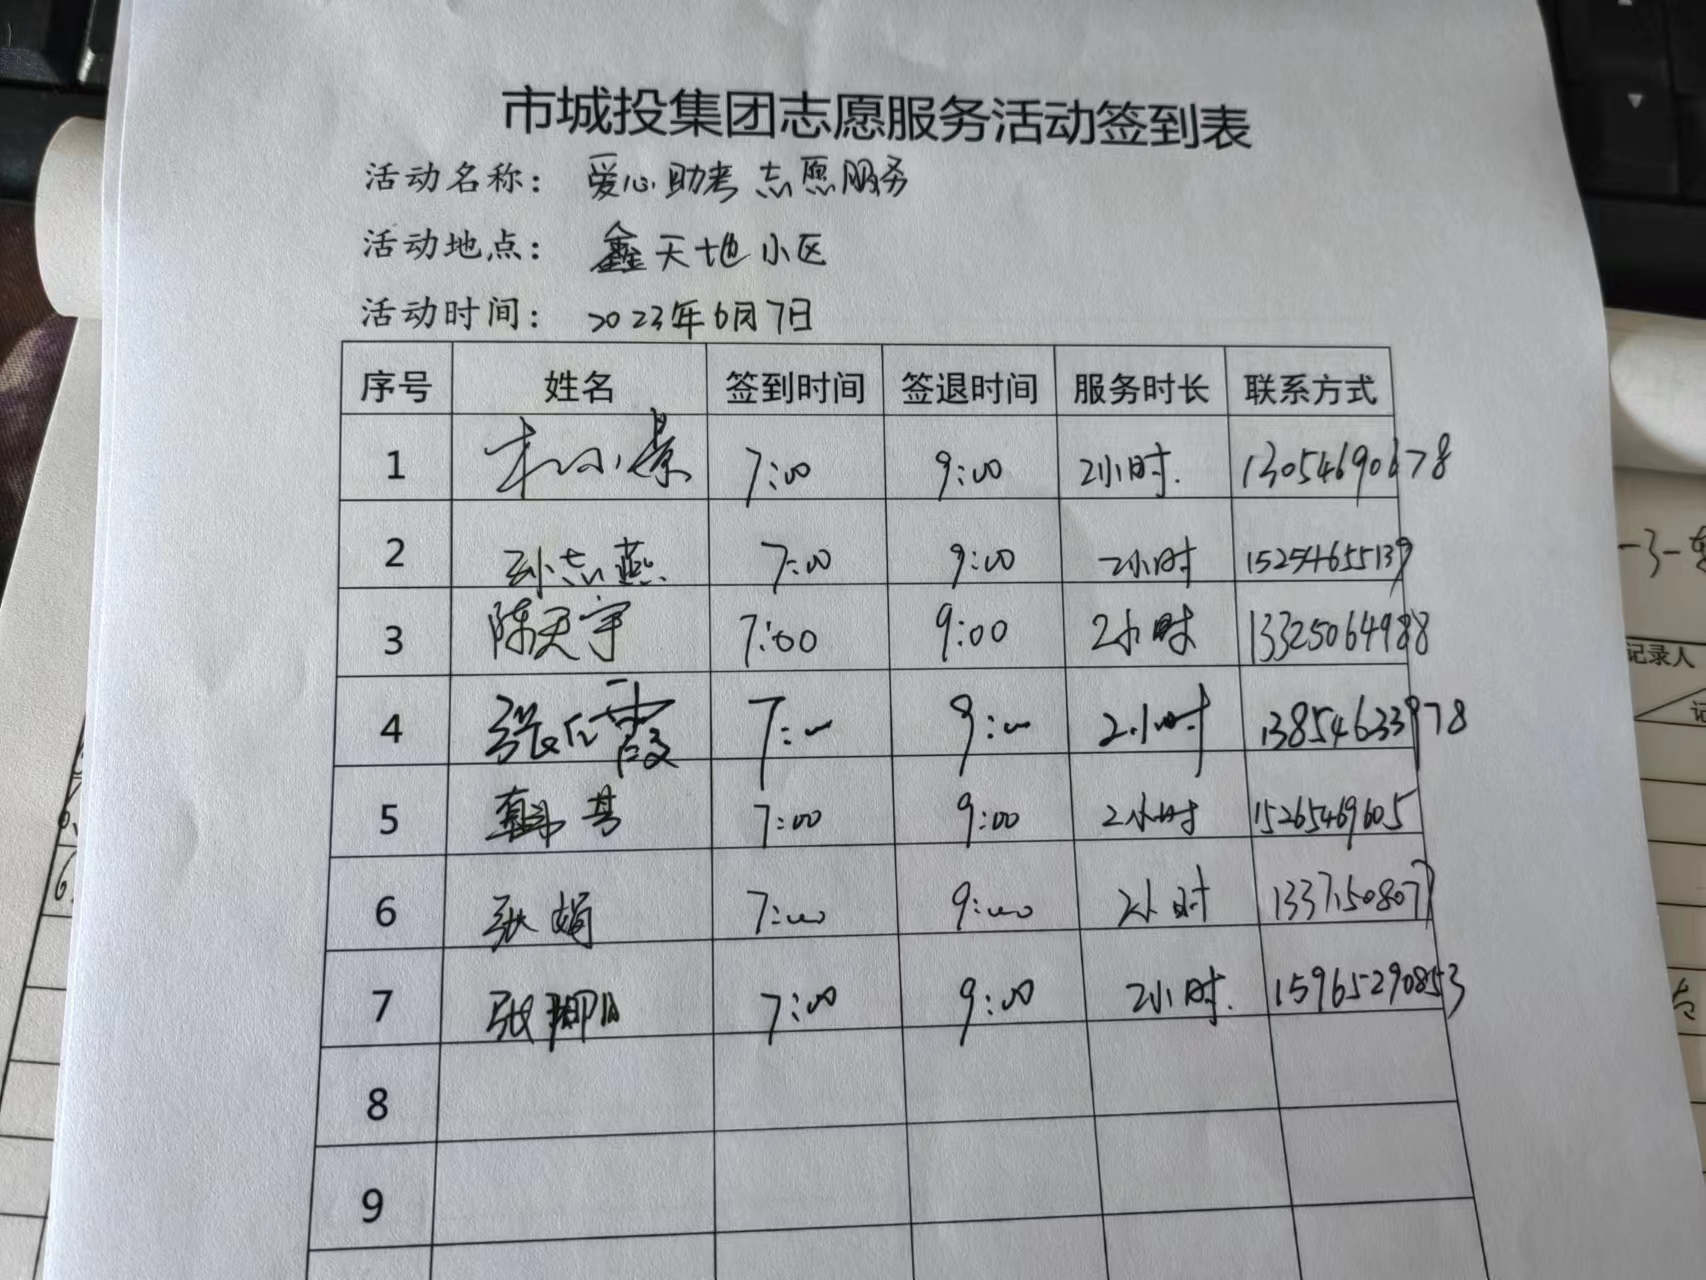 市城投集团志愿服务活动签到表
活动名称： 爱心助考志愿服务
活动地点： 鑫天地小区
活动时间： 2023年6月7日
序号 姓名 签到时间 签退时间 服务时长 联系方式
1 7:00 9:00 2小时. 13054690678
2 孙志燕 7:00 9:00 2小时 15254655139
3 陈天宇 7:00 9:00 2小时 13325064988
4 7:00 9:00 2小时 13854633978
5 7:00 9:00 2小时 15265469605
6 张娟 7:00 9:00 2小时
7 7:00 9:00 2小时. 15965290853
8
9
-3-
记录人